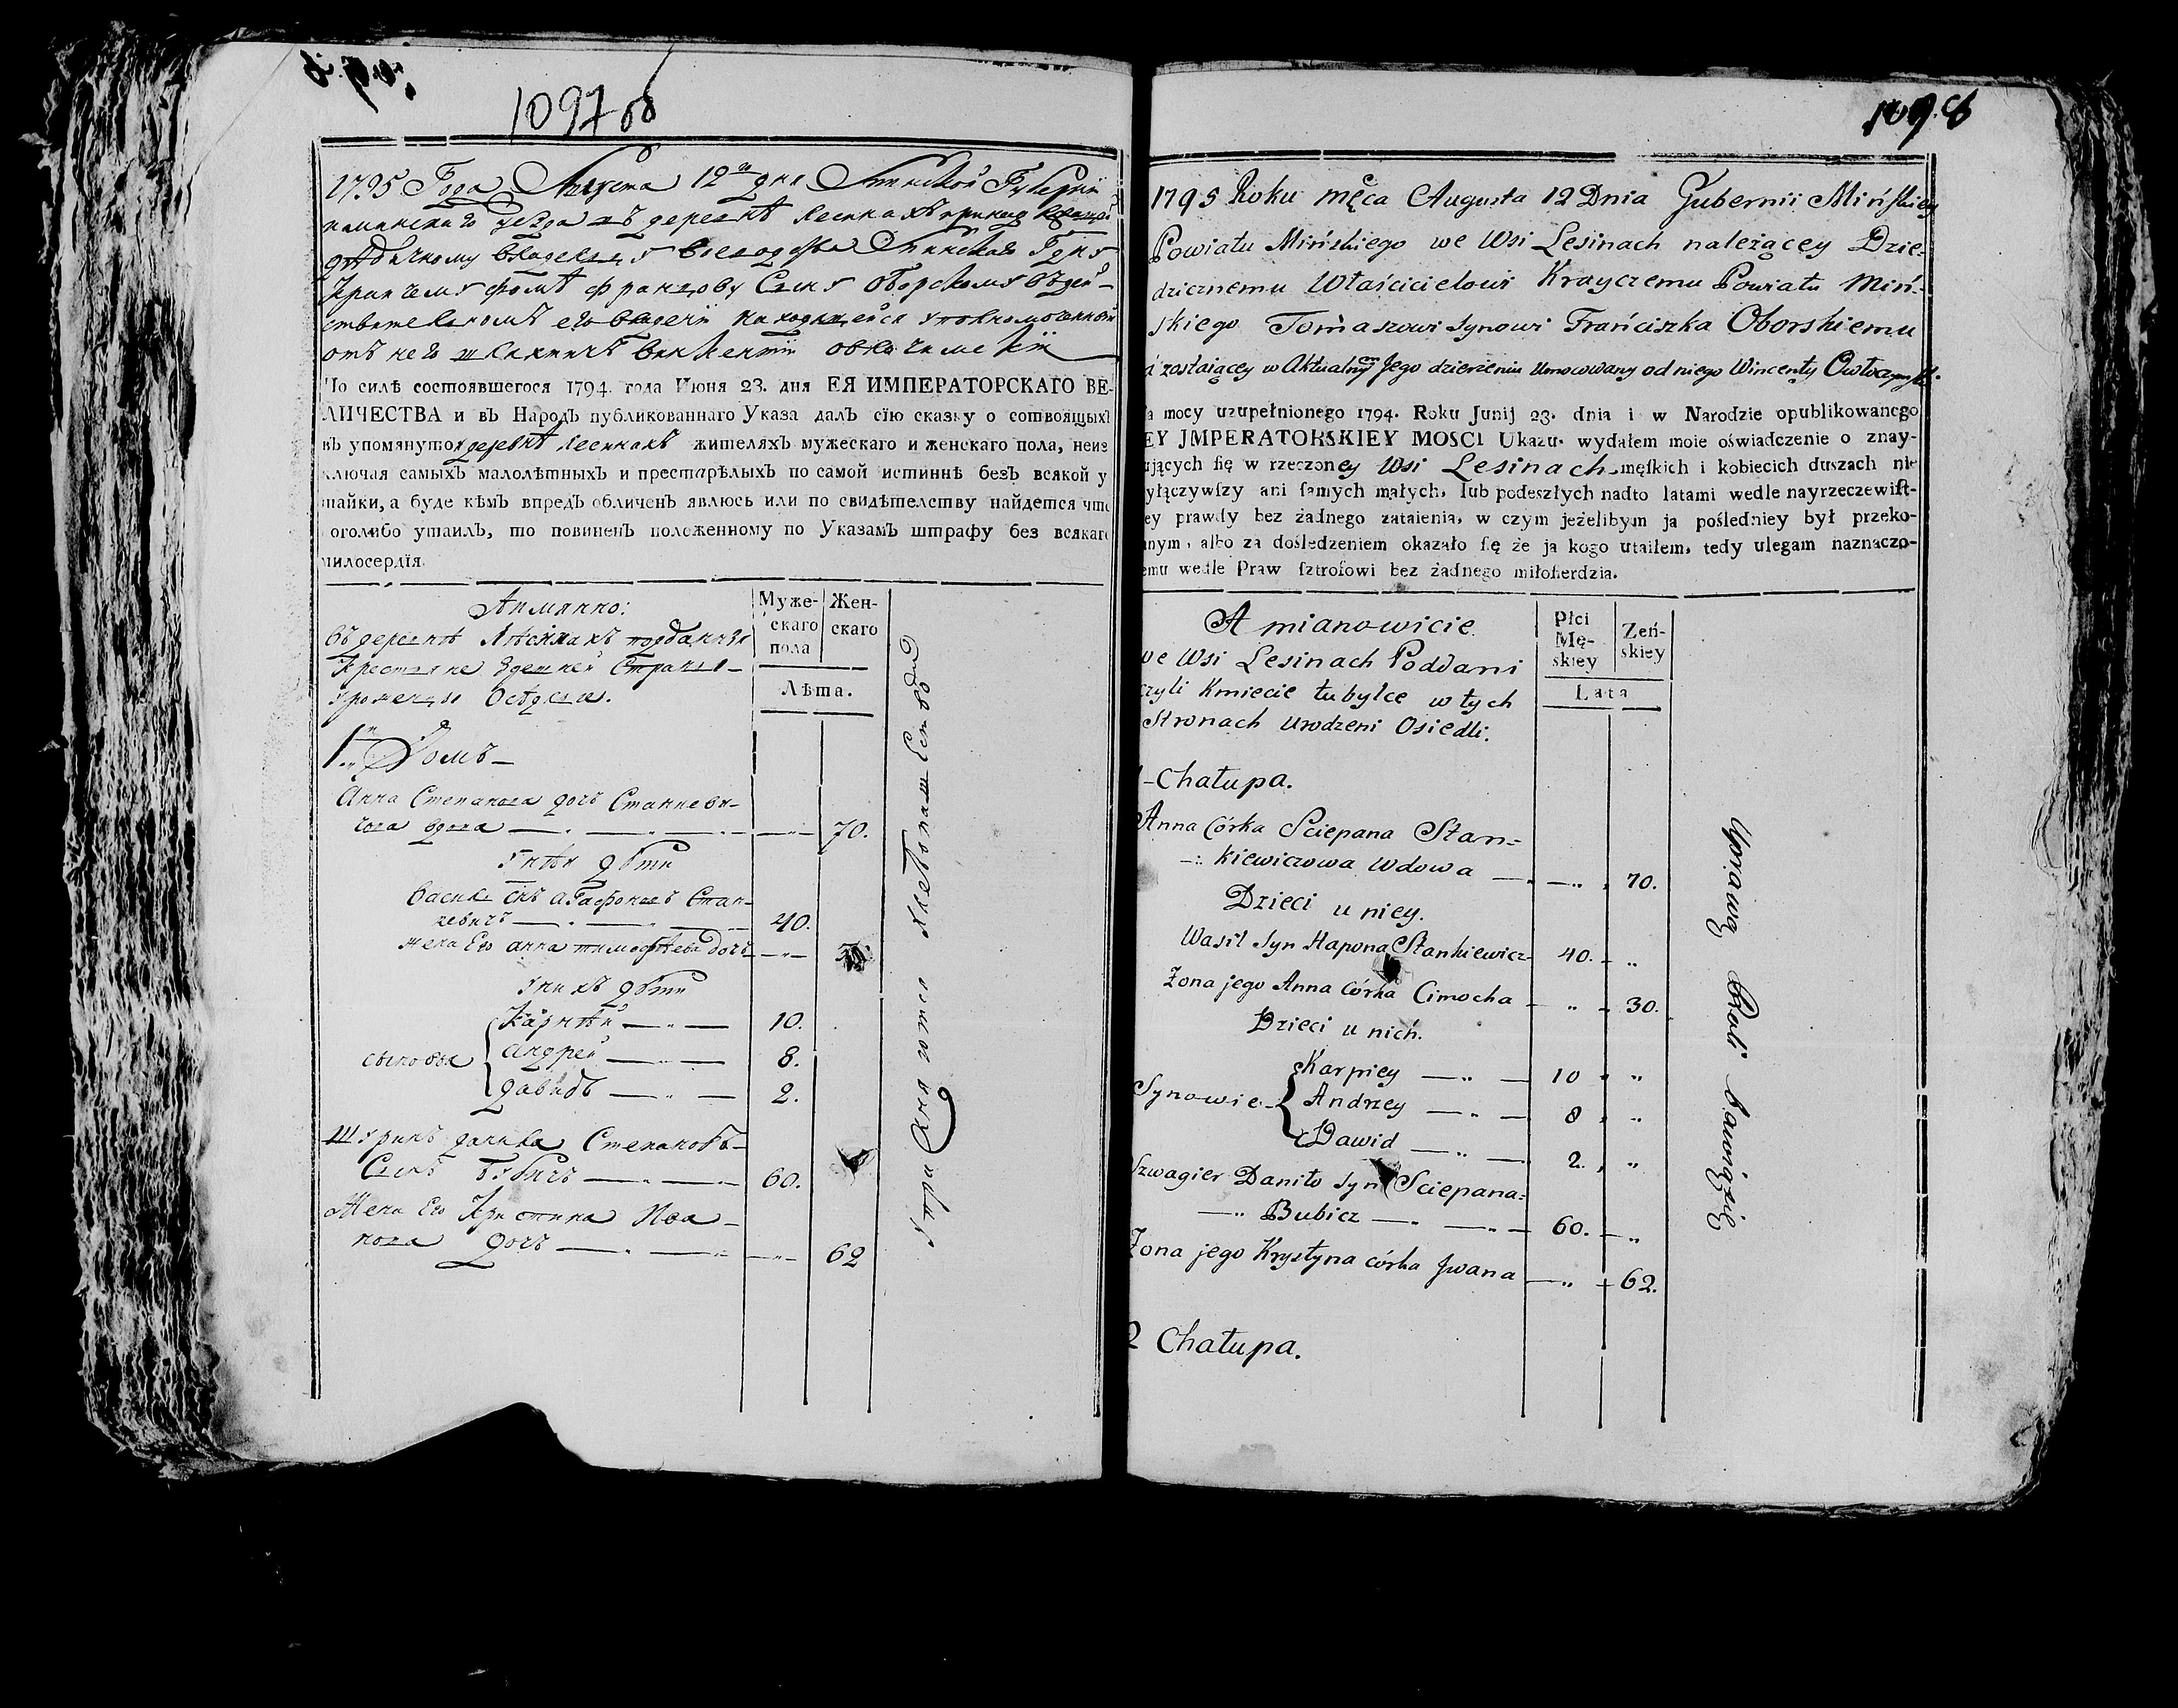 1097 об
1795 Года Августа 12 дня Минской Губернїи
Минскаго уезда въ деревнѣ Лесинахъ принадлежащей
дѣдичному владельцу воеводства Минскаго
Крайчему Фомѣ Францову Сыну Оборскому въ дей-
ствителномъ его владенїи находящейся уполномоченный
отъ него шляхтичъ Викентїи
По силѣ состоявшегося 1794. года Июня 23. дня ЕЯ ИМПЕРАТОРСКАГО ВЕ-
ЛИЧЕСТВА и въ Народъ публикованнаго Указа далъ сїю сказку о состоящыхъ
въ упомянутой деревнѣ Лесинахъ жителяхъ мужескаго и женскаго пола, неиз
ключая самыхъ малолѣтныхъ и престарѣлыхъ по самой истиннѣ безъ всякой у
тайки, а буде кѣмъ впредъ обличенъ явлюсь или по свидѣтелству найдется что
оголибо утаилъ, то повиненъ положенному по Указамъ штрафу без всякаго
милосердїя.
Аимянно:
Муже-
скаго
пола
Жен-
скаго
Лѣта.
въ деревнѣ Лѣсинахъ подданныя
Крестьяне здешней Страны
уроженцы Осѣдлые.
1. Домъ
Анна Степанова дочь Станкеви-
чова вдова 70.
у нѣи дѣти
Василь снъ Агафоновъ Стан-
кевичъ 40.
жена Его анна тимофѣева дочь
у нихъ дѣти
сыновья
Карпѣи 10.
андреи 8.
давидъ 2.
Шуринъ данила Степановъ
Сынъ Бубичъ 60.
Жена Его Кристина Ива-
нова дочь 62
109.8
1795 Roku męca Augusta 12 Dnia Gubernii Mińskiey
Powiatu Mińskiego we Wsi Lesinach należącey Dzie-
dzicznemu Właścicielowi Krayczemu Powiatu Miń-
skiego Tomaszowi synowi Franciszka Oborskiemu
a zostaiącey w Aktualnym Jego dzierzeniu Umocowany od niego Wincenty
a mocy uzupełnionego 1794. Roku Junij 23. dnia i w Narodzie opublikowanego
EY JMPERATORSKIEY MOSCI Ukazu. wydałem moie oświadczenie o znay-
ujących się w rzeczoney Wsi Lesinach męskich i kobiecich duszach nie
yłączywszy ani samych małych, lub podeszłych nadto latami wedle nayrzeczewist-
ey prawdy bez żadnego zataienia, w czym jeżelibym ja posledniey był przeko-
nym, albo za dośledzeniem okazało się że ja kogo utaiłem, tedy ulegam naznaczo-
emu wedle Praw sztrofowi bez żadnego miłosierdzia.
A mianowicie
Płci
Mę-
skiey
Zeń-
skiey
Lata
we Wsi Lesinach Poddani
czyli Kmiecie tubylce w tych
Stronach Urodzeni Osiedli.
1 - Chałupa.
Anna Córka Sciepana Stan-
kiewiczowa Wdowa 70.
Dzieci u niey.
Wasil syn Hapona Stankiewicz 40.
Zona jego Anna Córka Cimocha 30.
Dzieci u nich.
Synowie
Karpiey 10
Andrzey 8
Dawid 2.
Szwagier Daniło syn Sciepana
Bubicz 60.
Zona jego Krystyna córka Jwana 62.
Uprawą Roli bawią się
2 Chałupa.